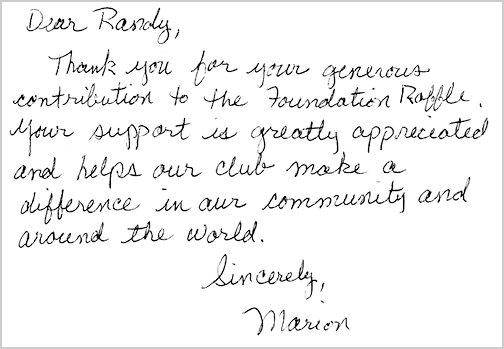 Dear Randy,
Thank you for your generous
contribution to the Foundation Raffle.
Your support is greatly appreciated
and helps our club make a
difference in our community and
around the world.
Sincerely,
Marion